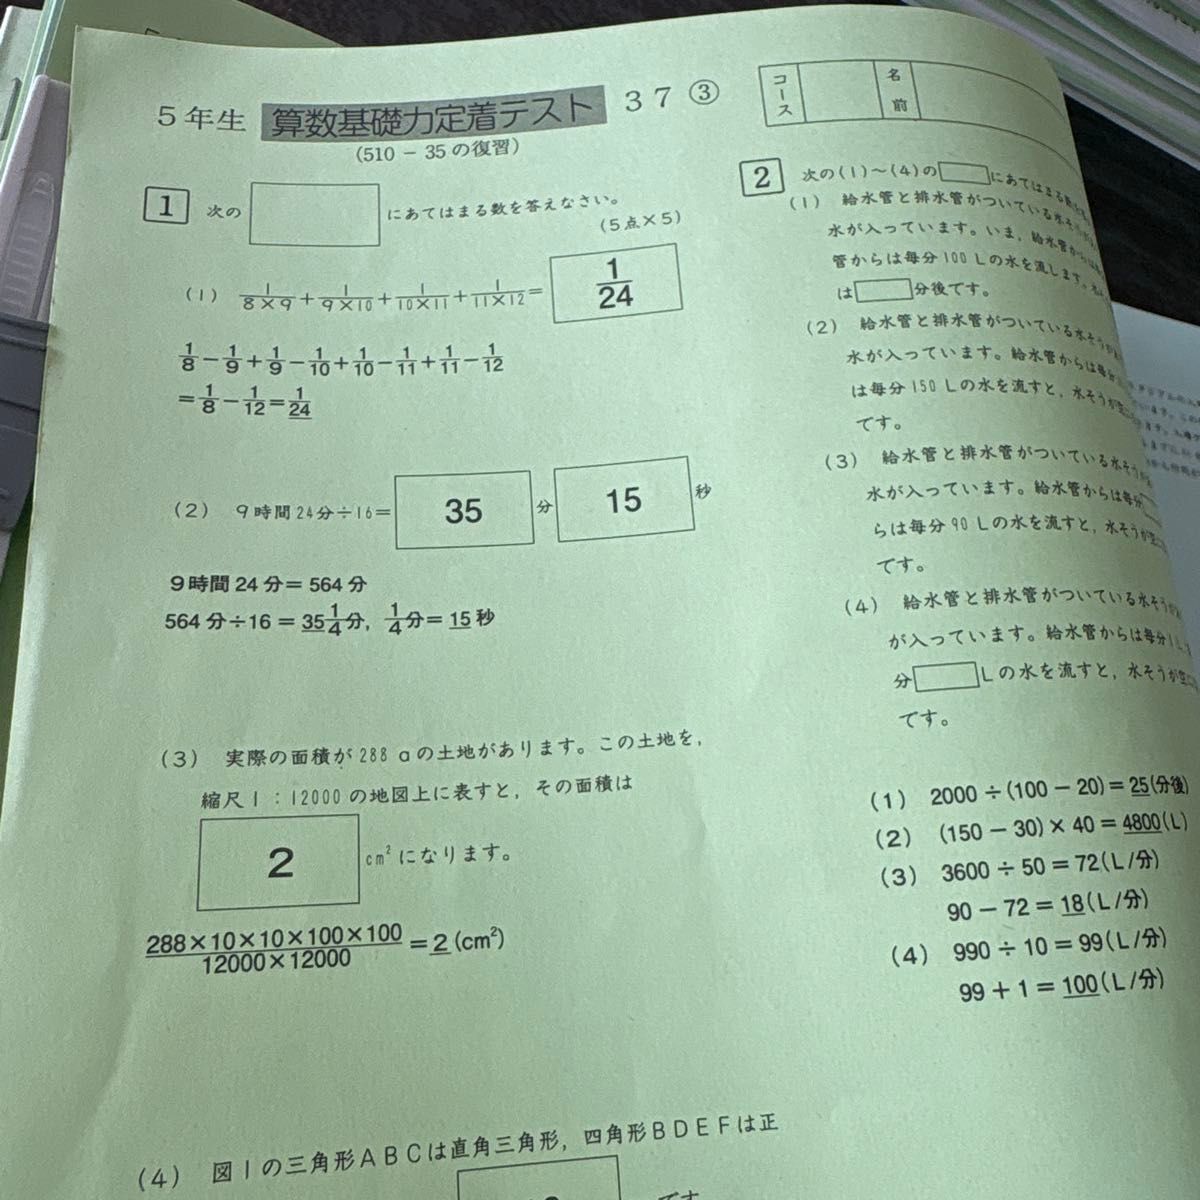 5年生 算数基礎力定着テスト 37 ③
(510－35の復習)
コース 名前
1 次の にあてはまる数を答えなさい。
(5点×5)
(1) 1/8×9 + 1/9×10 + 1/10×11 + 1/11×12 = 1/24
1/8 − 1/9 + 1/9 − 1/10 + 1/10 − 1/11 + 1/11 − 1/12
= 1/8 − 1/12 = 1/24
(2) 9時間24分÷16= 35 分 15 秒
9時間24分＝564分
564分÷16＝35 1/4分, 1/4分＝15秒
(3) 実際の面積が288aの土地があります。この土地を,
縮尺1：12000の地図上に表すと, その面積は
2 cm²になります。
288×10×10×100×100/12000×12000 ＝2(cm²)
(4) 図1の三角形ABCは直角三角形, 四角形BDEFは正
です
2 次の(1)～(4)の にあてはまる
(1) 給水管と排水管がついている水そう
水が入っています。いま, 給水管から
管からは毎分100Lの水を流します。
は 分後です。
(2) 給水管と排水管がついている水そう
水が入っています。給水管からは毎分
は毎分150Lの水を流すと, 水そうが空
です。
(3) 給水管と排水管がついている水そう
水が入っています。給水管からは毎分
らは毎分90Lの水を流すと, 水そうが空
です。
(4) 給水管と排水管がついている水そう
が入っています。給水管からは毎分1L
分 Lの水を流すと, 水そうが空
です。
(1) 2000÷(100－20)＝25(分後)
(2) (150－30)×40＝4800(L)
(3) 3600÷50＝72(L/分)
90－72＝18(L/分)
(4) 990÷10＝99(L/分)
99＋1＝100(L/分)